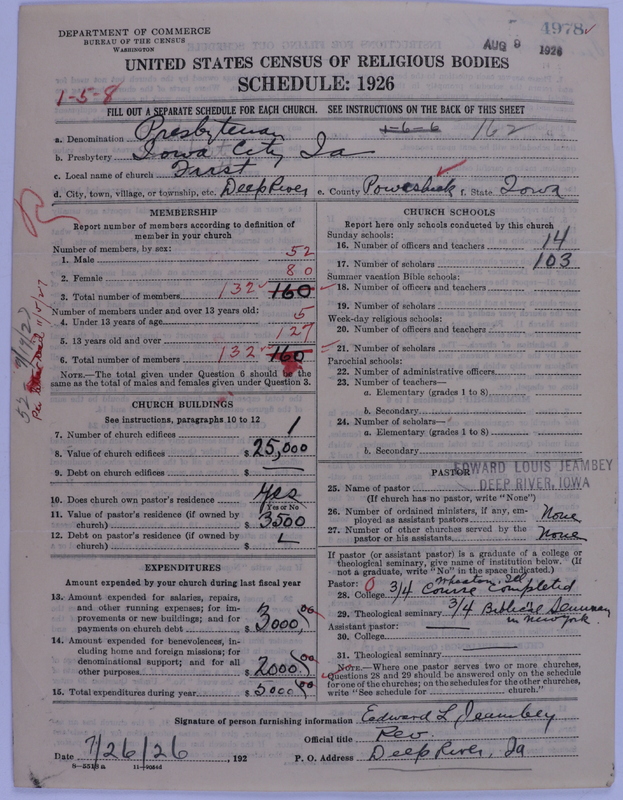 DEPARTMENT OF COMMERCE
BUREAU OF THE CENSUS
WASHINGTON
4978
AUG 9 1926
UNITED STATES CENSUS OF RELIGIOUS BODIES
SCHEDULE: 1926
1-5-8
FILL OUT A SEPARATE SCHEDULE FOR EACH CHURCH. SEE INSTRUCTIONS ON THE BACK OF THIS SHEET
a. Denomination Presbyterian 1-6-6 162
b. Presbytery Iowa City, Ia
c. Local name of church First
d. City, town, village, or township, etc. Deep River e. County Poweshiek f. State Iowa
MEMBERSHIP
Report number of members according to definition of
member in your church
Number of members, by sex:
1. Male 52
2. Female 80
3. Total number of members 132 160
Number of members under and over 13 years old:
4. Under 13 years of age 5
5. 13 years old and over 127
6. Total number of members 132 160
NOTE.—The total given under Question 6 should be the
same as the total of males and females given under Question 3.
CHURCH BUILDINGS
See instructions, paragraphs 10 to 12
7. Number of church edifices 1
8. Value of church edifices $ 25,000
9. Debt on church edifices $ —
10. Does church own pastor's residence Yes
Yes or No
11. Value of pastor's residence (if owned by
church) $ 3500
12. Debt on pastor's residence (if owned by
church) $
EXPENDITURES
Amount expended by your church during last fiscal year
13. Amount expended for salaries, repairs,
and other running expenses; for im-
provements or new buildings; and for
payments on church debt $ 3000,00
14. Amount expended for benevolences, in-
cluding home and foreign missions; for
denominational support; and for all
other purposes $ 2000,00
15. Total expenditures during year $ 5000,00
CHURCH SCHOOLS
Report here only schools conducted by this church
Sunday schools:
16. Number of officers and teachers 14
17. Number of scholars 103
Summer vacation Bible schools:
18. Number of officers and teachers
19. Number of scholars
Week-day religious schools:
20. Number of officers and teachers
21. Number of scholars
Parochial schools:
22. Number of administrative officers
23. Number of teachers—
a. Elementary (grades 1 to 8)
b. Secondary
24. Number of scholars—
a. Elementary (grades 1 to 8)
b. Secondary
PASTOR
EDWARD LOUIS JEAMBEY
DEEP RIVER, IOWA
25. Name of pastor
(If church has no pastor, write "None")
26. Number of ordained ministers, if any, em-
ployed as assistant pastors None
27. Number of other churches served by the
pastor or his assistants None
If pastor (or assistant pastor) is a graduate of a college or
theological seminary, give name of institution below. (If
not a graduate, write "No" in the space indicated.)
Pastor: 0 Wheaton, Ill
28. College 3/4 Course Completed
29. Theological seminary 3/4 Biblical Seminary
in New York.
Assistant pastor: —
30. College
31. Theological seminary
NOTE.—Where one pastor serves two or more churches,
Questions 28 and 29 should be answered only on the schedule
for one of the churches; on the schedules for the other churches,
write "See schedule for church."
Signature of person furnishing information Edward L Jeambey
Official title Rev.
Date 7/26/26, 192 P. O. Address Deep River, Ia
8—5518 a 11—90546